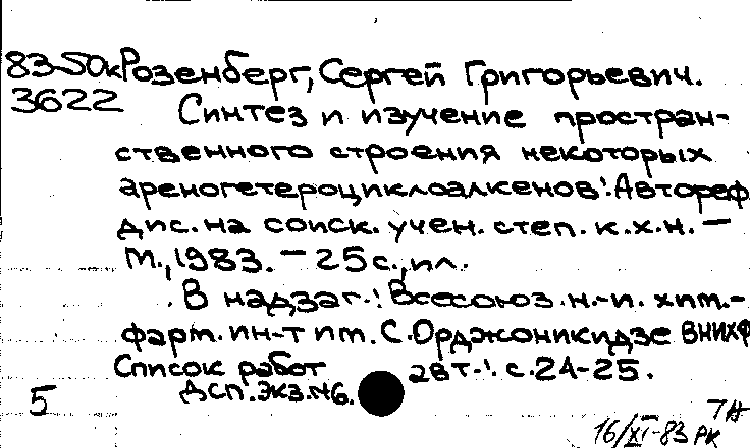 83-5Ок Розенберг, Сергей Григорьевич.
3622 Синтез и изучение простран-
ственного строения некоторых
ареногетероциклоалкенов: Автореф.
дис. на соиск. учен. степ. к.х.н. —
М., 1983. — 25 с., ил.
В надзаг.: Всесоюз. н.-и. хим.-
фарм. ин-т им. С. Орджоникидзе ВНИХФ
Список работ авт.: с. 24-25.
5 ДСП. Экз. №6.
16/XI-83 РК